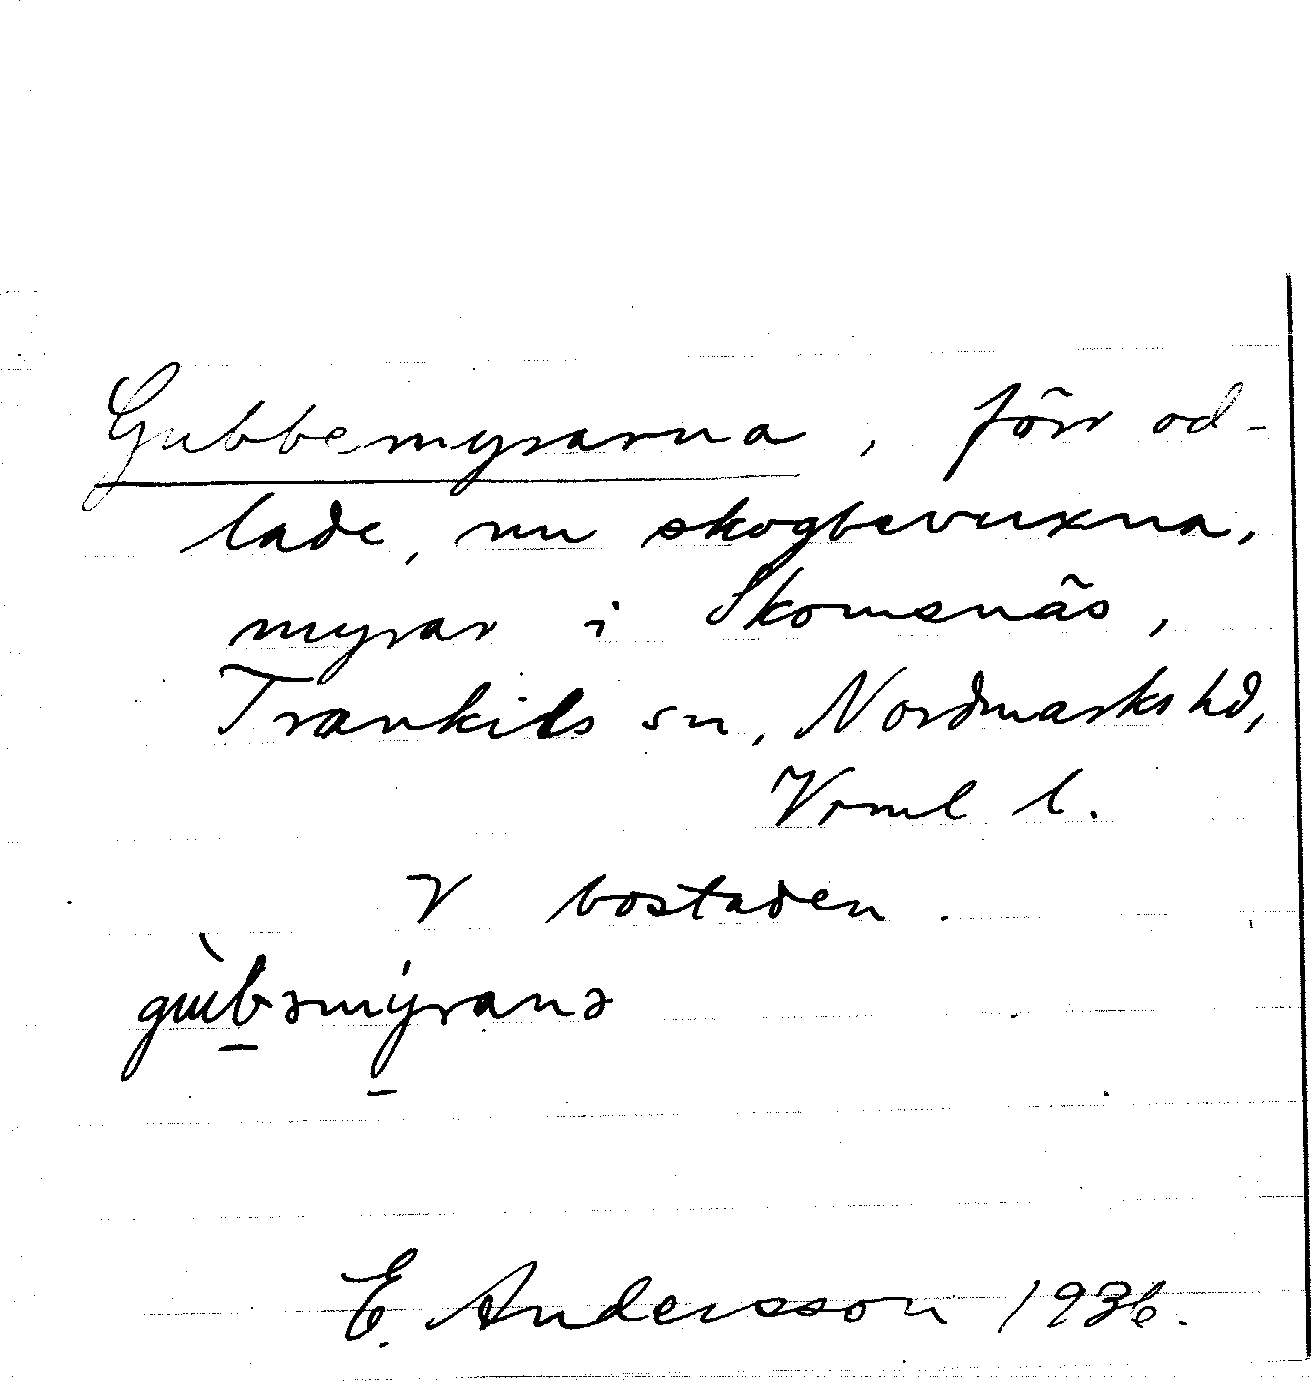 Gubbemyrarna, förr od-
lade, nu skogbevuxna,
myrar i Skomsnäs,
Trankils sn, Nordmarks hd,
Vrml l.
V bostaden.
gùb̠əmýranə
E. Andersson 1936.